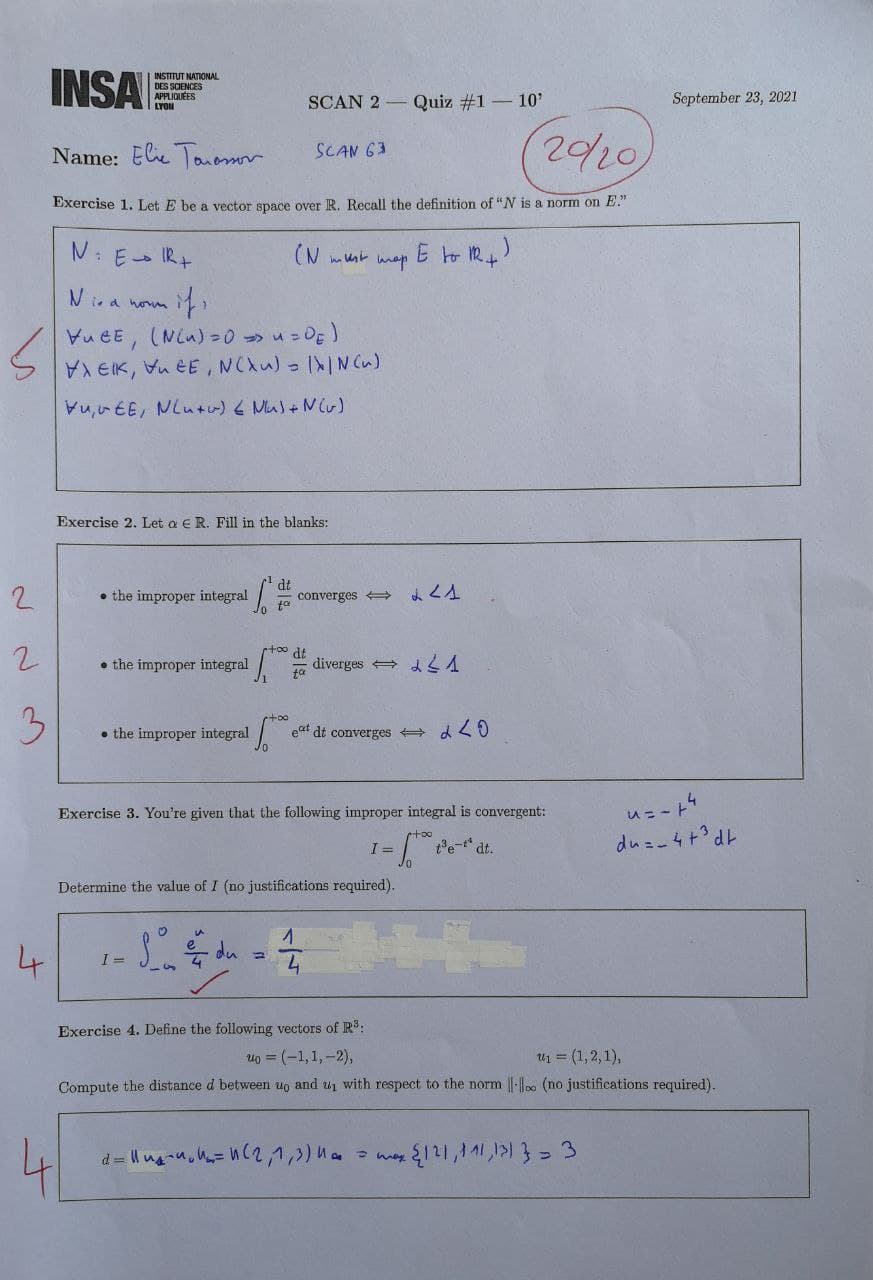 INSA INSTITUT NATIONAL
DES SCIENCES
APPLIQUÉES
LYON
SCAN 2 — Quiz #1 — 10'
September 23, 2021
Name: Elie SCAN 63
20/20
Exercise 1. Let E be a vector space over ℝ. Recall the definition of “N is a norm on E.”
N : E → ℝ+ (N must map E to ℝ+)
N is a norm if,
∀u∈E, (N(u)=0 ⇒ u=0_E)
5
∀λ∈𝕂, ∀u∈E, N(λu) = |λ|N(u)
∀u,v∈E, N(u+v) ≤ N(u)+N(v)
Exercise 2. Let α ∈ ℝ. Fill in the blanks:
2 • the improper integral ∫_0^1 dt/t^α converges ⟺ α<1
2 • the improper integral ∫_1^{+∞} dt/t^α diverges ⟺ α≤1
3 • the improper integral ∫_0^{+∞} e^{αt} dt converges ⟺ α<0
Exercise 3. You're given that the following improper integral is convergent:
u=-t^4
I = ∫_0^{+∞} t^3 e^{-t^4} dt.
du=-4t^3 dt
Determine the value of I (no justifications required).
4 I = ∫_{-∞}^0 e^u/4 du = 1/4
Exercise 4. Define the following vectors of ℝ^3:
u_0 = (−1, 1, −2), u_1 = (1, 2, 1),
Compute the distance d between u_0 and u_1 with respect to the norm ‖·‖_∞ (no justifications required).
4 d = ‖u_1-u_0‖_∞ = ‖(2,1,3)‖_∞ = max{|2|,|1|,|3|} = 3